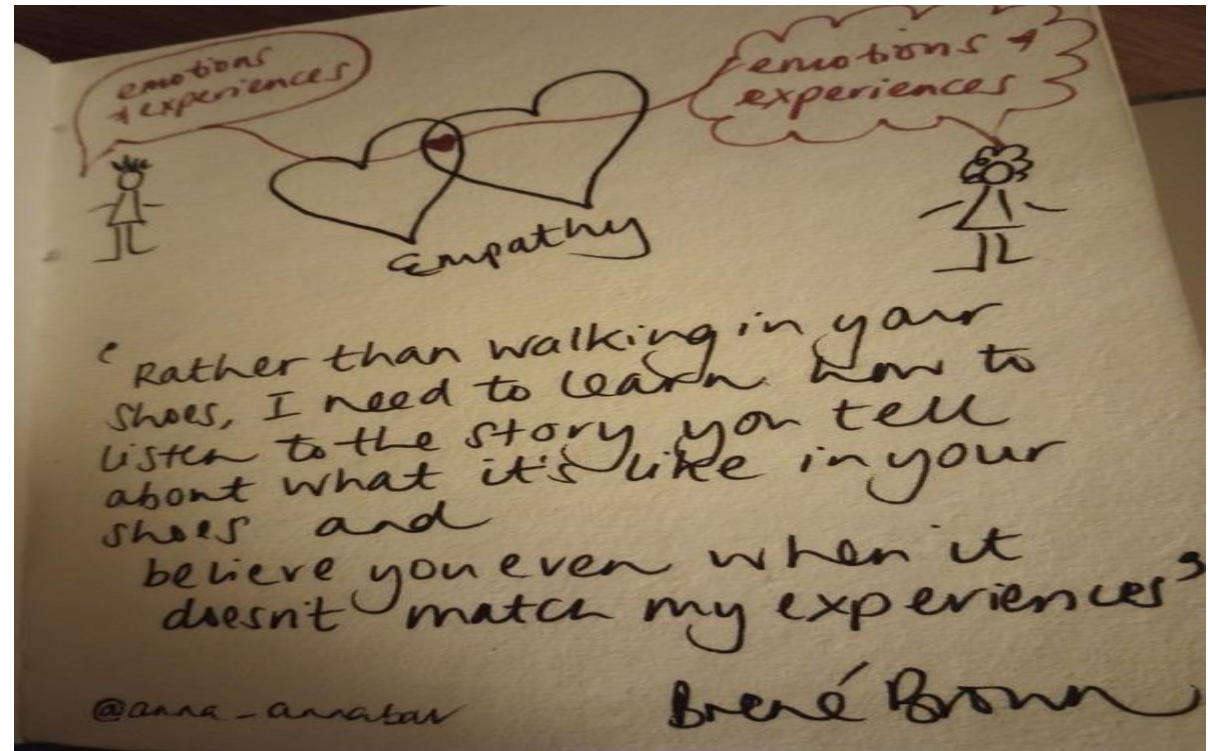 emotions
+ experiences
emotions +
experiences
Empathy
'Rather than walking in your
shoes, I need to learn how to
listen to the story you tell
about what it's like in your
shoes and
believe you even when it
doesn't match my experiences'
@anna_annabar
Brené Brown